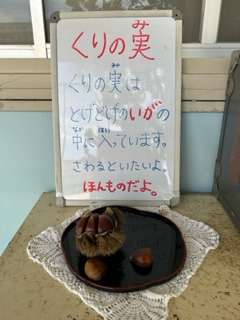 くりの実
み
くりの実は
み
とげとげのいがの
中に入っています。
なか はい
さわるといたいよ。
ほんものだよ。